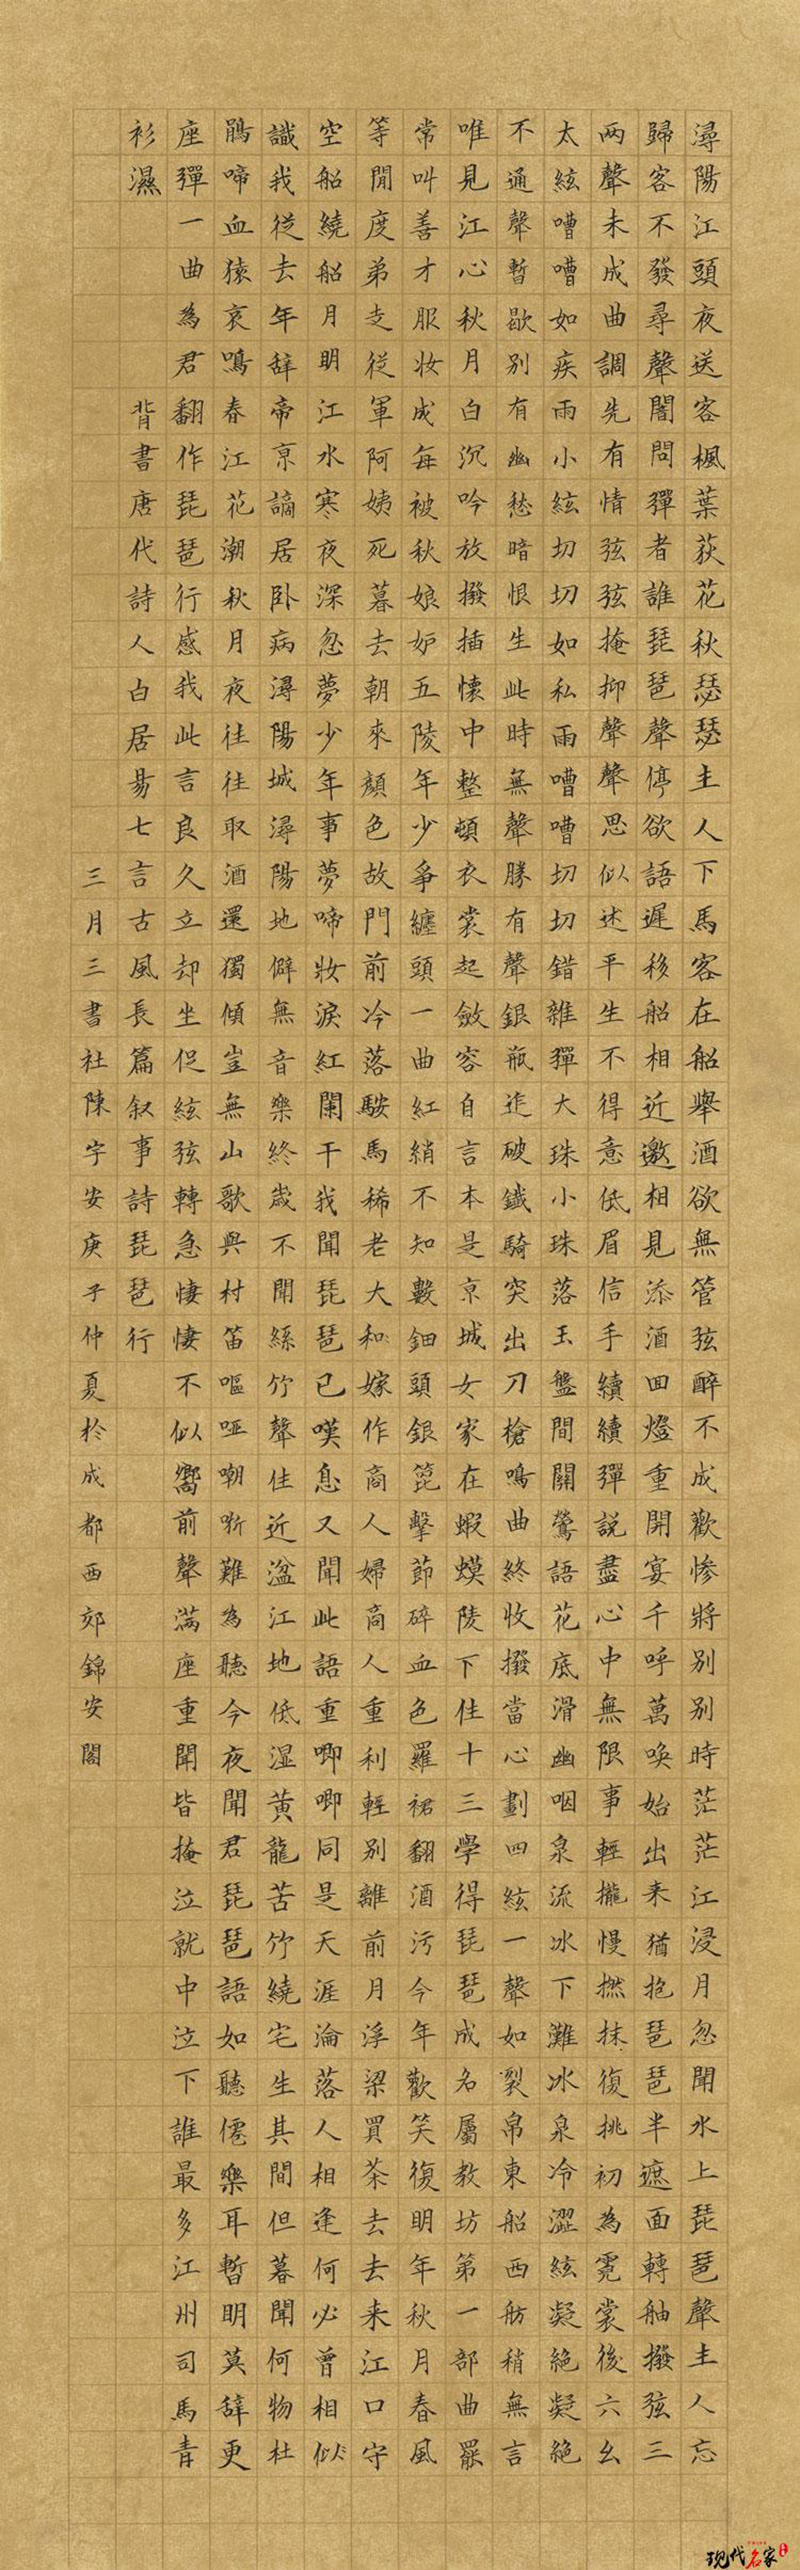 潯陽江頭夜送客楓葉荻花秋瑟瑟主人下馬客在船舉酒欲無管弦醉不成歡慘將別別時茫茫江浸月忽聞水上琵琶聲主人忘
歸客不發尋聲闇問彈者誰琵琶聲停欲語遲移船相近邀相見添酒回燈重開宴千呼萬喚始出来猶抱琶琶半遮面轉舳撥弦三
两聲未成曲調先有情弦弦掩抑聲聲思似述平生不得意低眉信手續續彈說盡心中無限事輕攏慢撚抹復挑初為霓裳後六幺
太絃嘈嘈如疾雨小絃切切如私雨嘈嘈切切錯雜彈大珠小珠落玉盤間關鶯語花底滑幽咽泉流冰下灘冰泉冷澀絃凝絕凝絕
不通聲暫歇別有幽愁暗恨生此時無聲勝有聲銀瓶迸破鐵騎突出刀槍鳴曲終收撥當心劃四絃一聲如裂帛東船西舫稍無言
唯見江心秋月白沉吟放撥插懷中整頓衣裳起斂容自言本是京城女家在蝦蟆陵下住十三學得琵琶成名屬教坊第一部曲罷
常叫善才服妆成每被秋娘妒五陵年少爭纏頭一曲紅綃不知數鈿頭銀篦擊節碎血色羅裙翻酒污今年歡笑復明年秋月春風
等閒度弟走從軍阿姨死暮去朝來顏色故門前冷落鞍馬稀老大和嫁作商人婦商人重利輕別離前月浮梁買茶去去来江口守
空船繞船月明江水寒夜深忽夢少年事夢啼妝淚紅闌干我聞琵琶已嘆息又聞此語重唧唧同是天涯淪落人相逢何必曾相似
識我從去年辞帝京謫居卧病潯陽城潯陽地僻無音樂終歲不聞絲竹聲住近湓江地低湿黄龍苦竹繞宅生其間但暮聞何物杜
鵑啼血猿哀鳴春江花潮秋月夜往往取酒還獨傾豈無山歌與村笛嘔啞嘲哳難為聽今夜聞君琵琶語如聽僊樂耳暫明莫辞更
座彈一曲為君翻作琵琶行感我此言良久立却坐促絃弦轉急悽悽不似嚮前聲满座重聞皆掩泣就中泣下誰最多江州司馬青
衫濕 背書唐代詩人白居易七言古風長篇叙事詩琵琶行
三月三書社陳宇安庚子仲夏於成都西郊錦安閣
现代名家